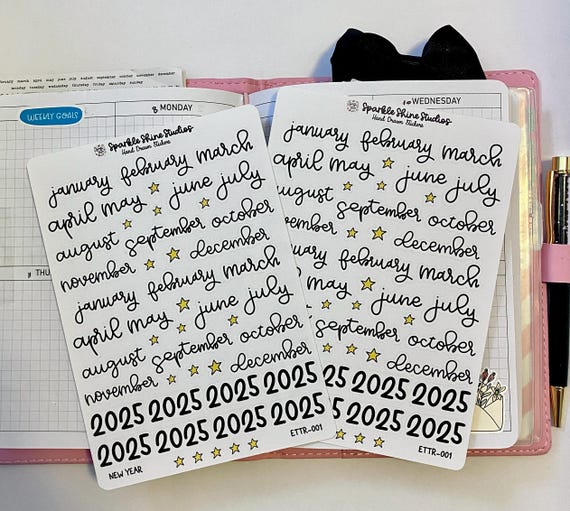 january march april may june july august september october november december
monday tuesday wednesday thursday friday saturday sunday
WEEKLY GOALS
8 MONDAY
10 WEDNESDAY
THU
Sparkle Shine Studios
Hand Drawn Stickers
january february march
april may june july
august september october
november december
january february march
april may june july
august september october
november december
2025 2025 2025 2025
2025 2025 2025 2025
NEW YEAR
ETTR-001
Sparkle Shine Studios
Hand Drawn Stickers
january february march
april may june july
august september october
november december
february march
may june july
september october
december
2025 2025
2025 2025
ETTR-001